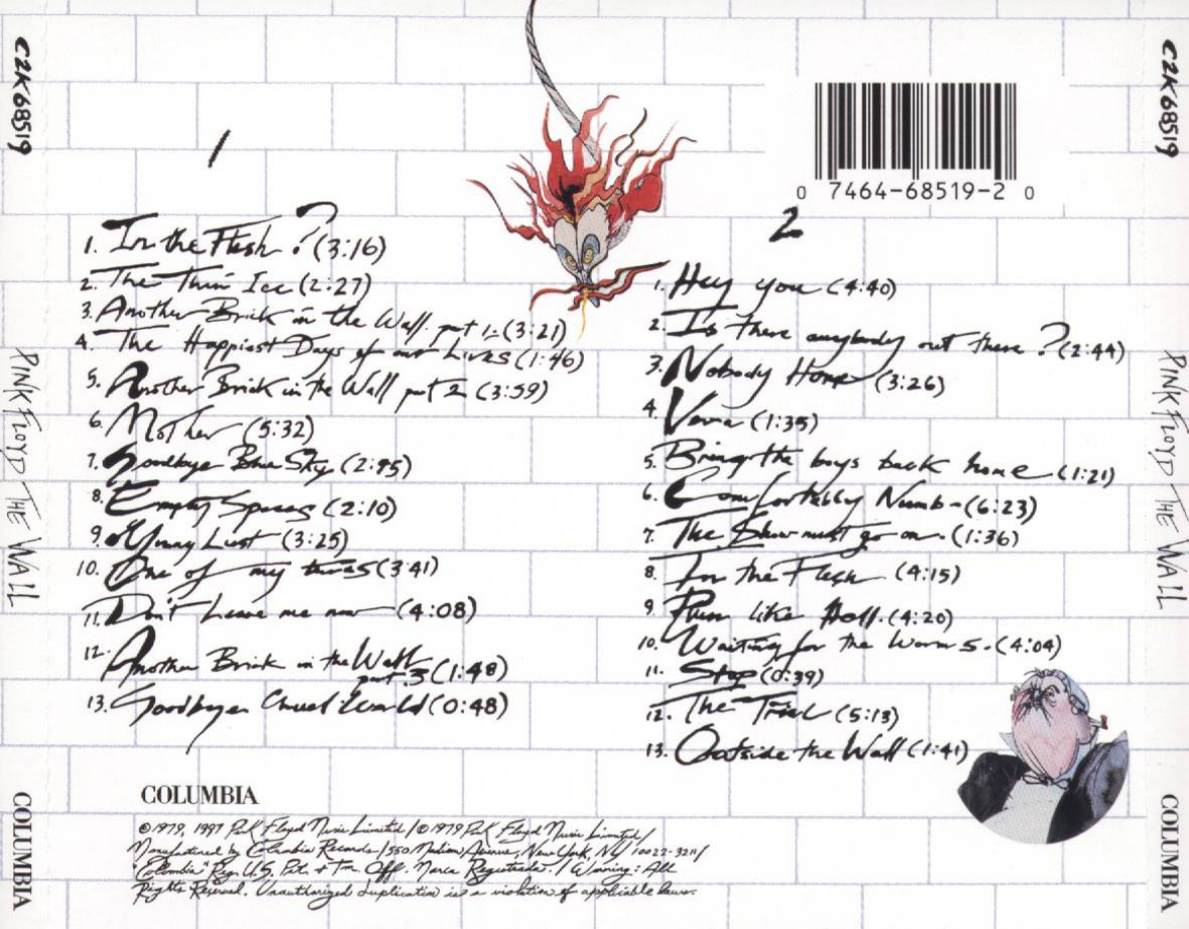 C2K 68519
PINK FLOYD THE WALL
COLUMBIA
1
1. In the Flesh? (3:16)
2. The Thin Ice (2:27)
3. Another Brick in the Wall part 1 (3:21)
4. The Happiest Days of our Lives (1:46)
5. Another Brick in the Wall part 2 (3:59)
6. Mother (5:32)
7. Goodbye Blue Sky (2:45)
8. Empty Spaces (2:10)
9. Young Lust (3:25)
10. One of my turns (3:41)
11. Don't Leave me now (4:08)
12. Another Brick in the Wall
part 3 (1:48)
13. Goodbye Cruel World (0:48)
0 7464-68519-2 0
2
1. Hey you (4:40)
2. Is there anybody out there? (2:44)
3. Nobody Home (3:26)
4. Vera (1:35)
5. Bring the boys back home (1:21)
6. Comfortably Numb - (6:23)
7. The Show must go on. (1:36)
8. In the Flesh (4:15)
9. Run like Hell. (4:20)
10. Waiting for the Worms. (4:04)
11. Stop (0:39)
12. The Trial (5:13)
13. Outside the Wall (1:41)
COLUMBIA
©1979, 1997 Pink Floyd Music Limited / ℗ 1979 Pink Floyd Music Limited /
Manufactured by Columbia Records / 550 Madison Avenue, New York, NY 10022-3211 /
"Columbia" Reg. U.S. Pat. & Tm. Off. Marca Registrada. / Warning: All
Rights Reserved. Unauthorized duplication is a violation of applicable laws.
C2K 68519
PINK FLOYD THE WALL
COLUMBIA